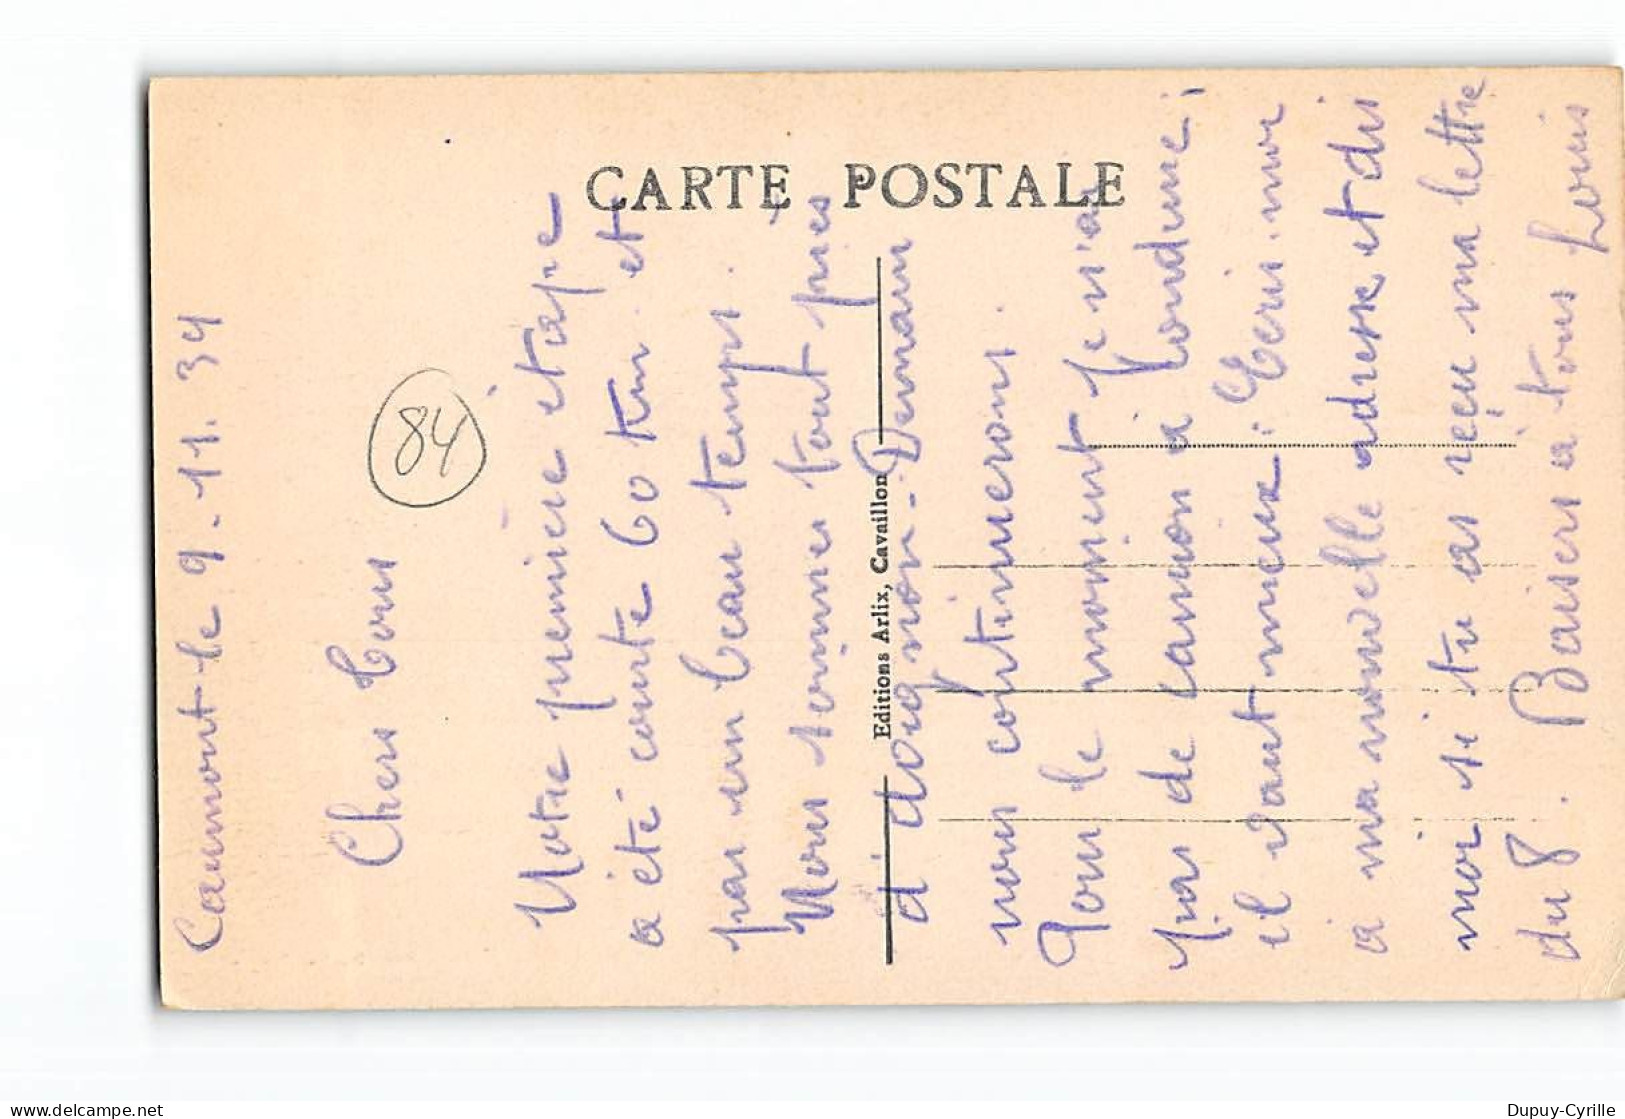 CARTE POSTALE
Editions Arlix, Cavaillon
84
Caumont le 9-11.34
Chers Tous
Notre première étape
a été courte 60 km. et
par un beau temps.
Nous sommes tout près
d'avignon. Demain
nous continuerons.
Pour le moment je n'ai
pas de camion à conduire;
il vaut mieux. Ecris-moi
à ma nouvelle adresse et dis
moi si tu as reçu ma lettre
du 8. Baisers à tous Louis
Dupuy-Cyrille
delcampe.net